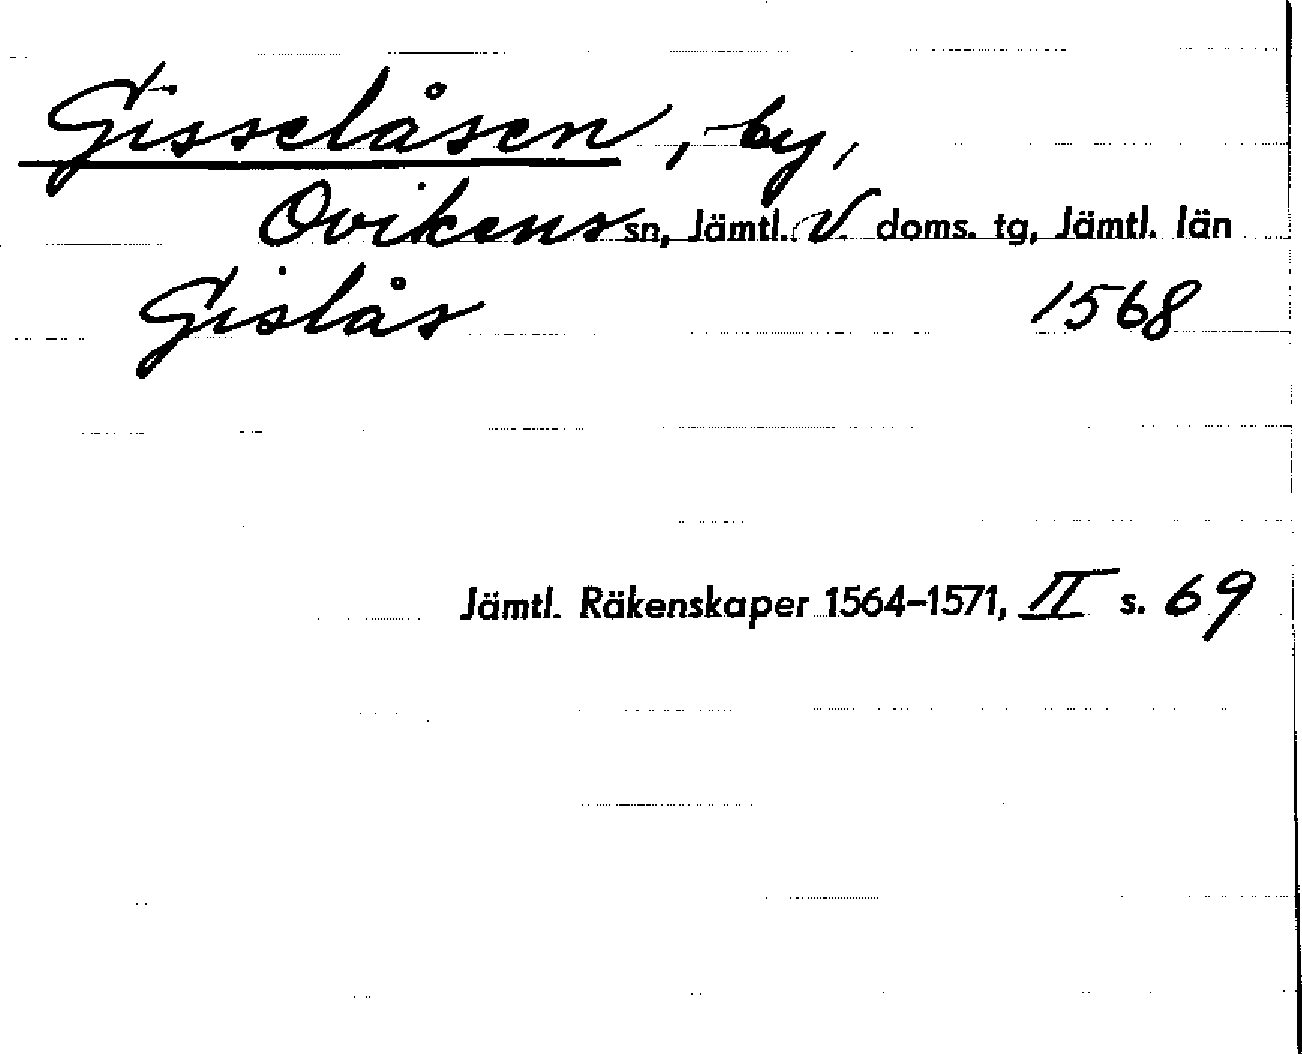 Gisselåsen, by,
Ovikens sn, Jämtl. V. doms. tg, Jämtl. län
Gislås 1568
Jämtl. Räkenskaper 1564-1571, II s. 69